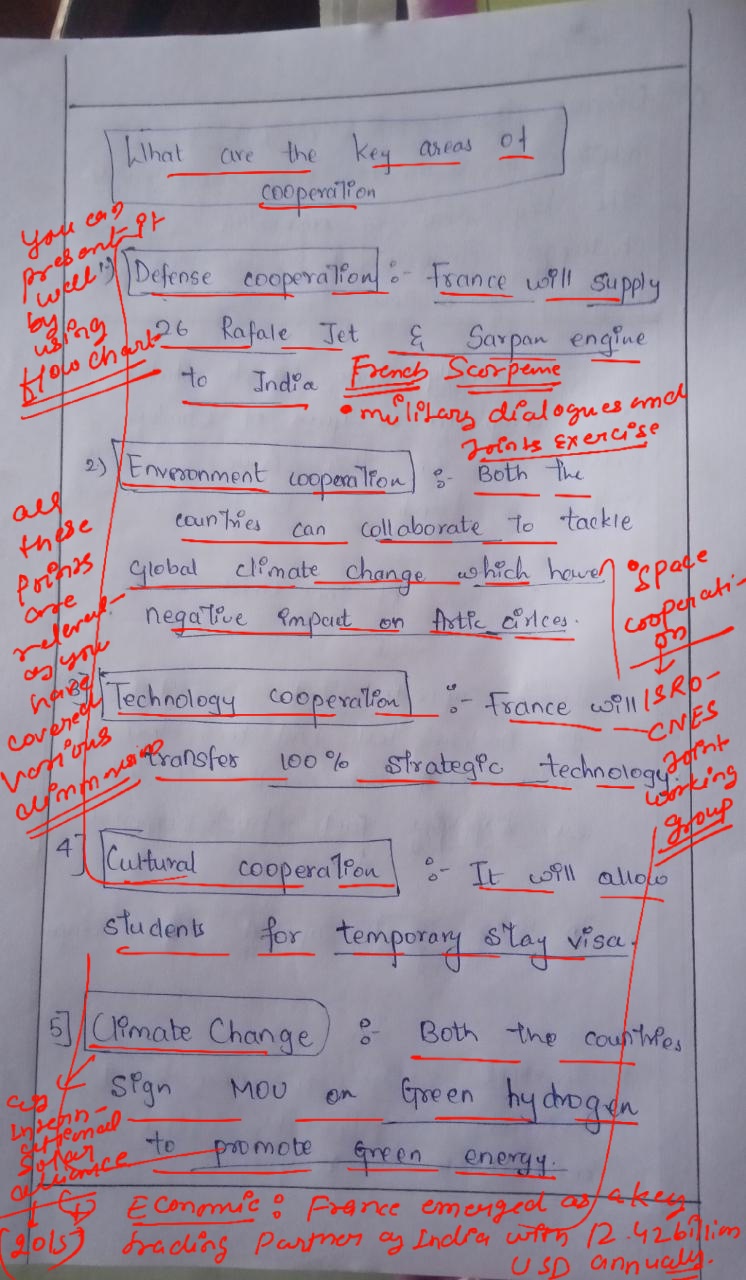 What are the key areas of
cooperation
you can
present it
well
by
using
flow chart
1) Defense cooperation :- France will supply
26 Rafale Jet & Sarpan engine
to India French Scorpene
• military dialogues and
Joints Exercise
2) Enveronment cooperation :- Both the
countries can collaborate to tackle
global climate change which have
negative impact on Artic cirlces.
all
these
points
are
relevant
as you
have
covered
various
dimmension
• Space
cooperati-
on
ISRO-
CNES
Joint
working
group
3] Technology cooperation :- France will
transfer 100% strategic technology.
4] Cultural cooperation :- It will allow
students for temporary stay visa.
5] Climate Change :- Both the countries
sign MOU on Green hydrogen
to promote green energy.
eg
Intern-
ational
Solar
alliance
(2015)
Economic : France emerged as a key
trading Partner of India with 12.42 billion
USD annually.